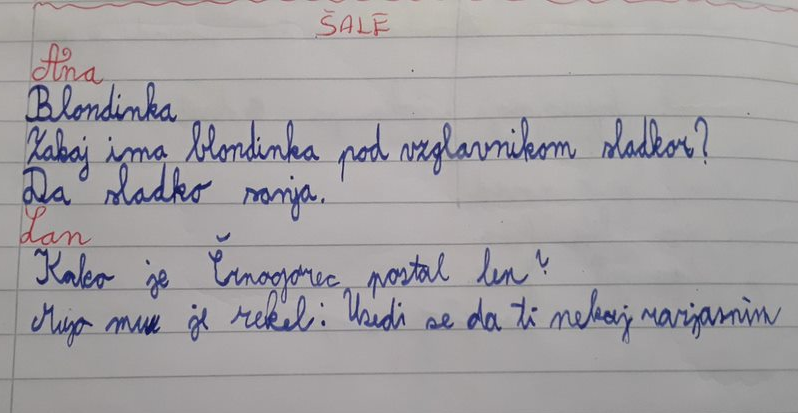 ŠALE
Ana
Blondinka
Zakaj ima blondinka pod vzglavnikom sladkor?
Da sladko sanja.
Lan
Kako je Črnogorec postal len?
mu je rekel: Usedi se da ti nekaj razjasnim